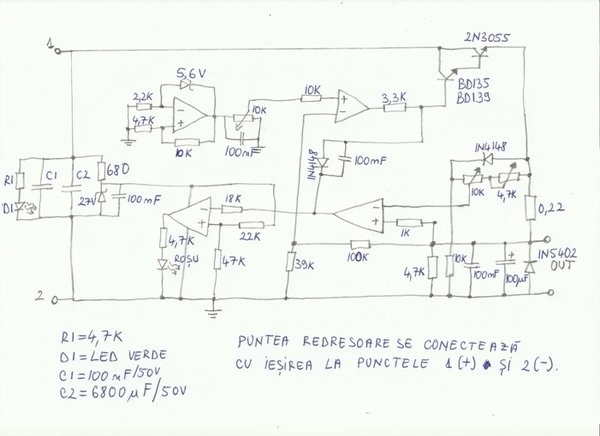 2N3055
1
5,6V
BD135
BD139
2,2K
10K
10K
3,3K
4,7K
10K
100mF
1N4148
100mF
1N4148
10K
4,7K
R1
C1
C2
680
D1
27V
100mF
18K
22K
1K
0,22
4,7K
ROȘU
47K
39K
100K
4,7K
10K
100mF
+
100µF
1N5402
OUT
2
R1=4,7K
D1=LED VERDE
C1=100mF/50V
C2=6800µF/50V
PUNTEA REDRESOARE SE CONECTEAZĂ
CU IEȘIREA LA PUNCTELE 1(+) ȘI 2(-).